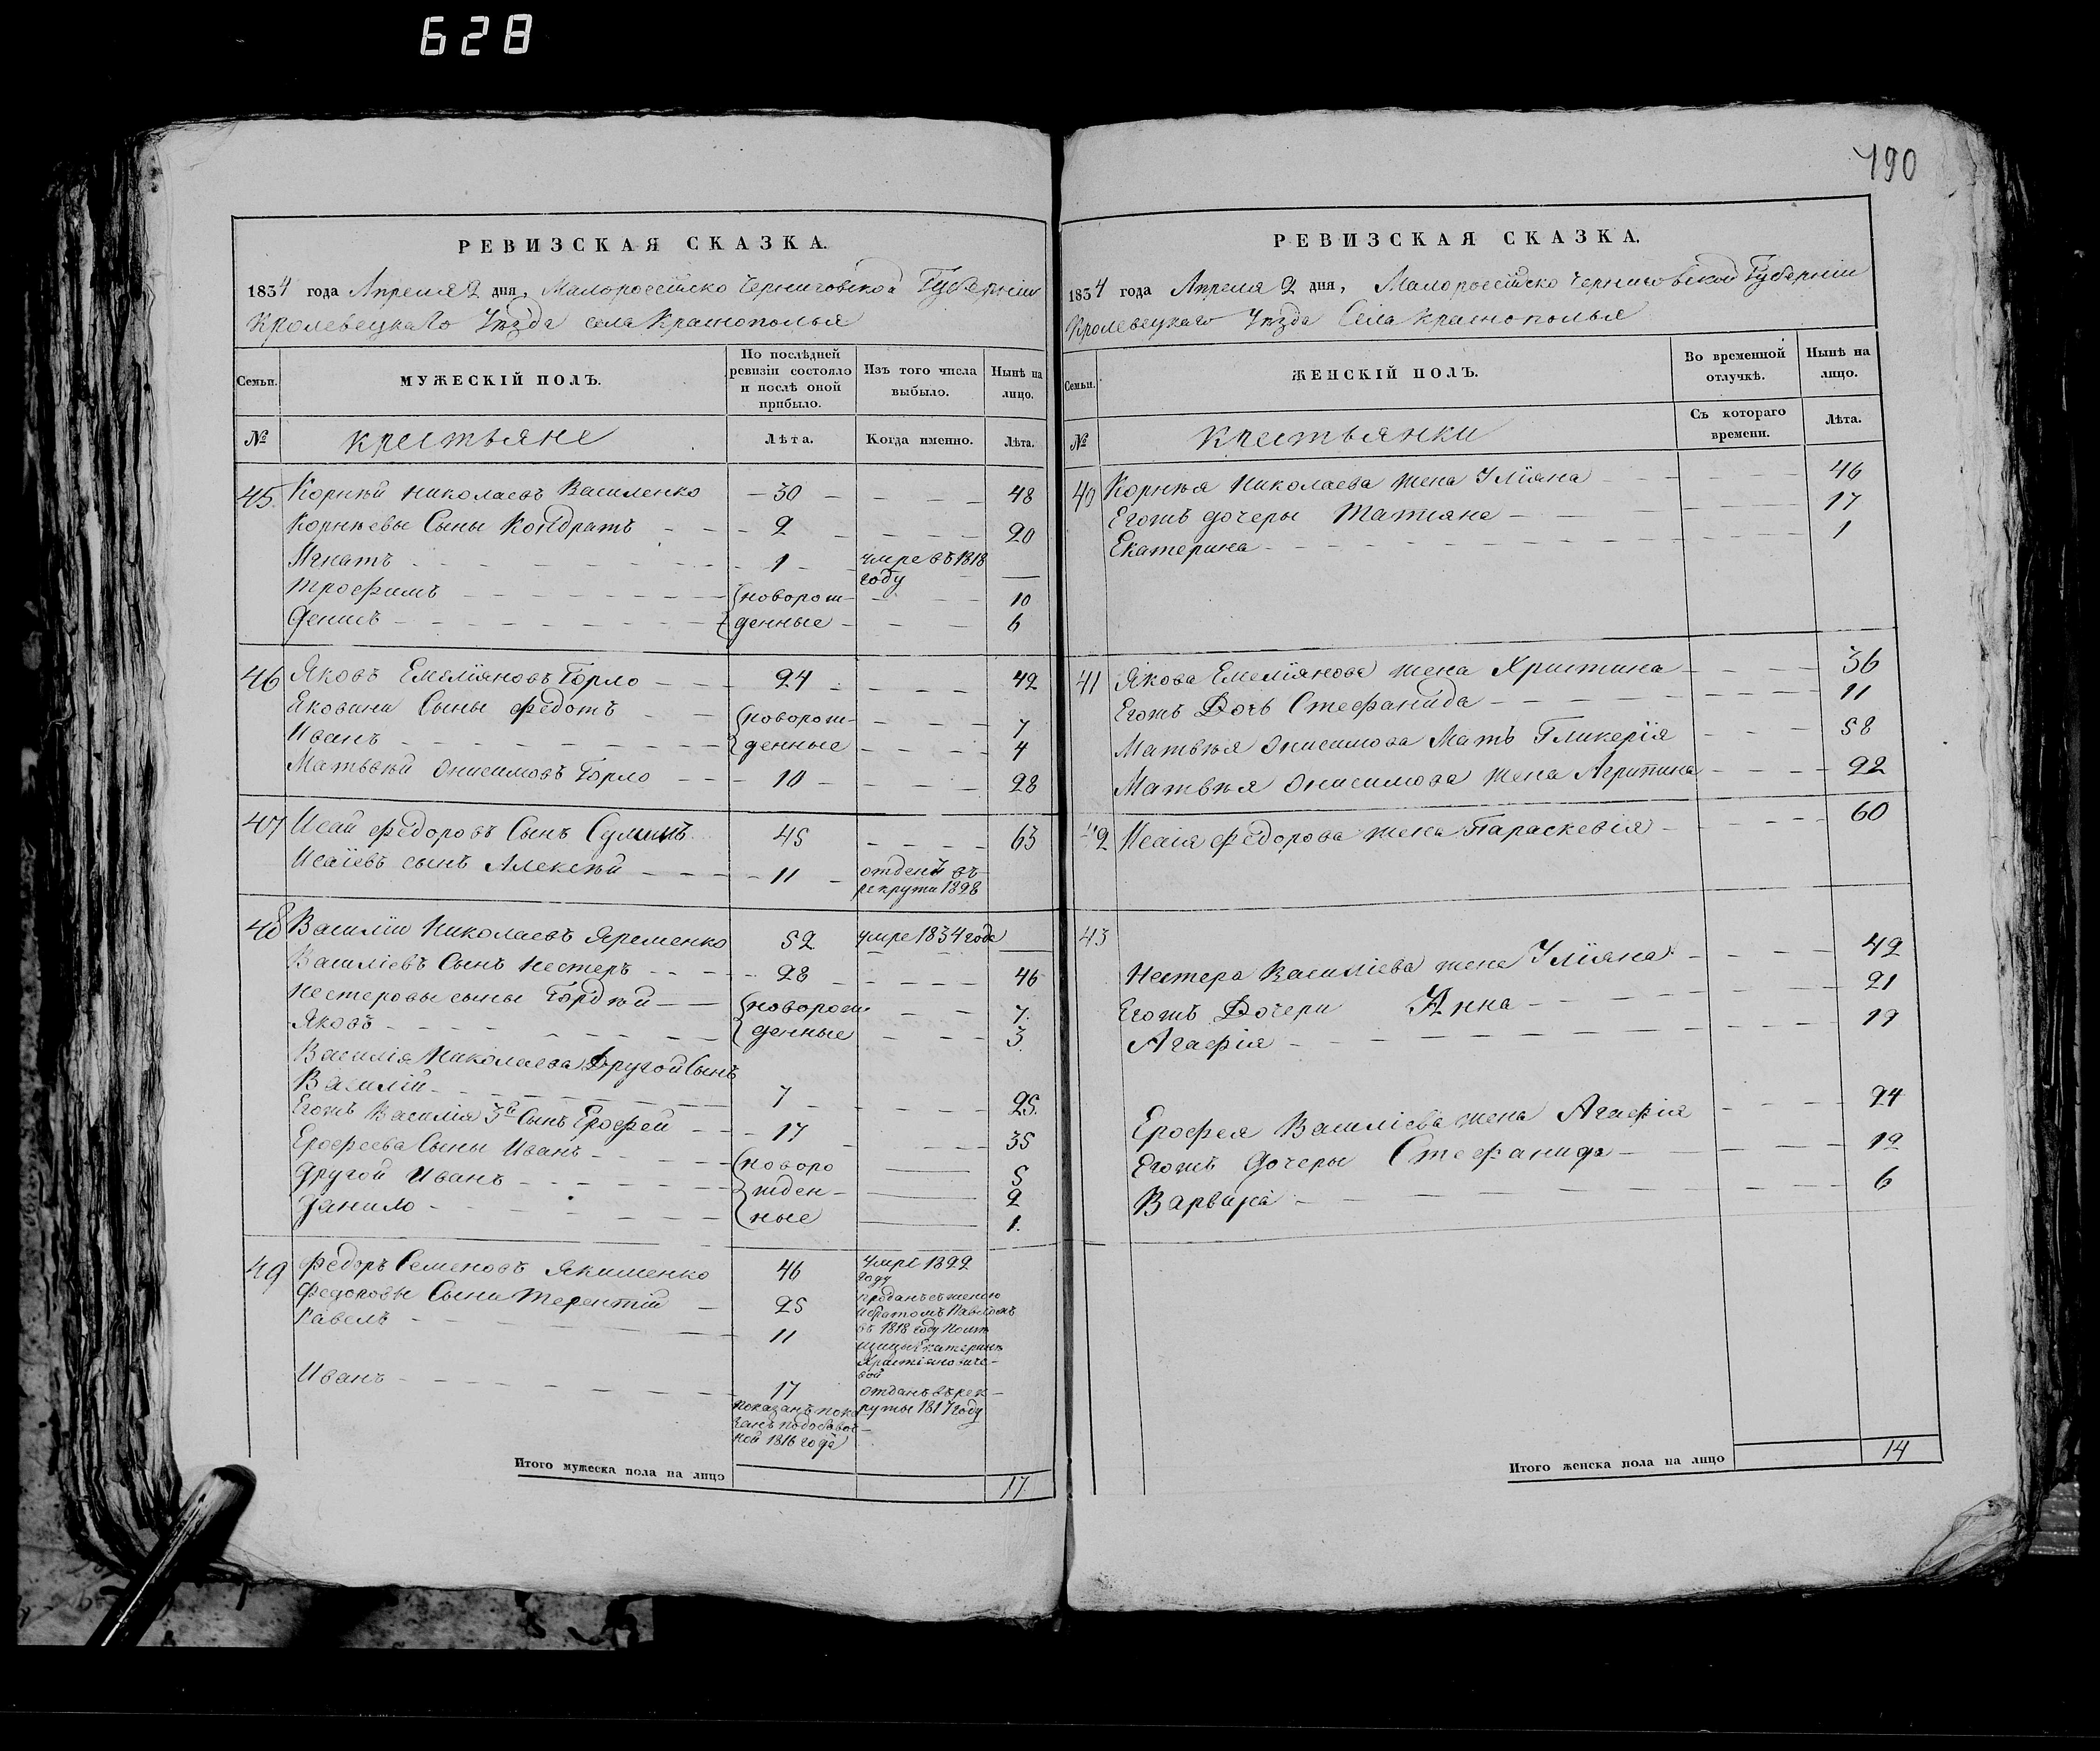 628
490
РЕВИЗСКАЯ СКАЗКА.
1834 года Апреля 2 дня, Малороссійско Черниговской Губерніи
Кролевецкаго Уѣзда села Краснополья
Семьи.
МУЖЕСКІЙ ПОЛЪ.
По послѣдней ревизіи состояло и послѣ оной прибыло.
Изъ того числа выбыло.
Нынѣ на лицо.
№
крестьяне
Лѣта.
Когда именно.
Лѣта.
45. Корнѣй Николаевъ Василенко 30 48
Корнѣевы Сыны Кондратъ 2 20
Игнатъ 1 умре въ 1818 году
Трофимъ новорож- 10
Денисъ денные 6
46 Яковъ Емеліяновъ Горло 24 42
Яковини Сыны Федотъ новорож- 7
Иванъ денные 4
Матвѣй Онисимовъ Горло 10 28
47 Исай Федоровъ Сынъ 45 63
Исаіевъ сынъ Алексѣй 11 отденъ въ рекруты 1828
48 Василій Николаевъ Яременко 52 умре 1834 года
Василіевъ Сынъ Нестеръ 28 46
Нестеровы сыны Гордѣй новорож- 7.
Яковъ денные 3.
Василія Николаева Другой Сынъ
Василій 7 25.
Егожъ Василія 3й Сынъ Ерофей 17 35
Ерофеева Сыны Иванъ новоро 5
Другой Иванъ жден- 2
Данило ные 1.
49 Федоръ Семеновъ Якименко 46 умре 1822 году
Федоровы Сыны Терентій 25 проданъ съ женою
Павелъ 11 и братомъ Павломъ въ 1818 году
Иванъ 17 отданъ въ рек-
руты 1817 году
1816 года
Итого мужеска пола на лицо 17.
РЕВИЗСКАЯ СКАЗКА.
1834 года Апреля 2 дня, Малороссійско Черниговской Губерніи
Кролевецкаго Уѣзда Села Краснополья
Семьи.
ЖЕНСКІЙ ПОЛЪ.
Во временной отлучкѣ.
Нынѣ на лицо.
№
Крестьянки
Съ котораго времени.
Лѣта.
40 Корнѣя Николаева жена Уліяна 46
Егожъ дочеры Татіяна 17
Екатерина 1
41 Якова Емеліянова жена Христина 36
Егожъ Дочь Стефанида 11
Матвѣя Онисимова Мать Гликерія 58
Матвѣя Онисимова жена Агрипина 22
42 Исаія Федорова жена Параскевія 60
43
Нестера Василіева жена Уліяна 42
Егожъ Дочери Анна 21
Агафія 19
Ерофея Василіева жена Агафія 24
Егожъ Дочеры Стефанида 12
Варвара 6
Итого женска пола на лицо 14